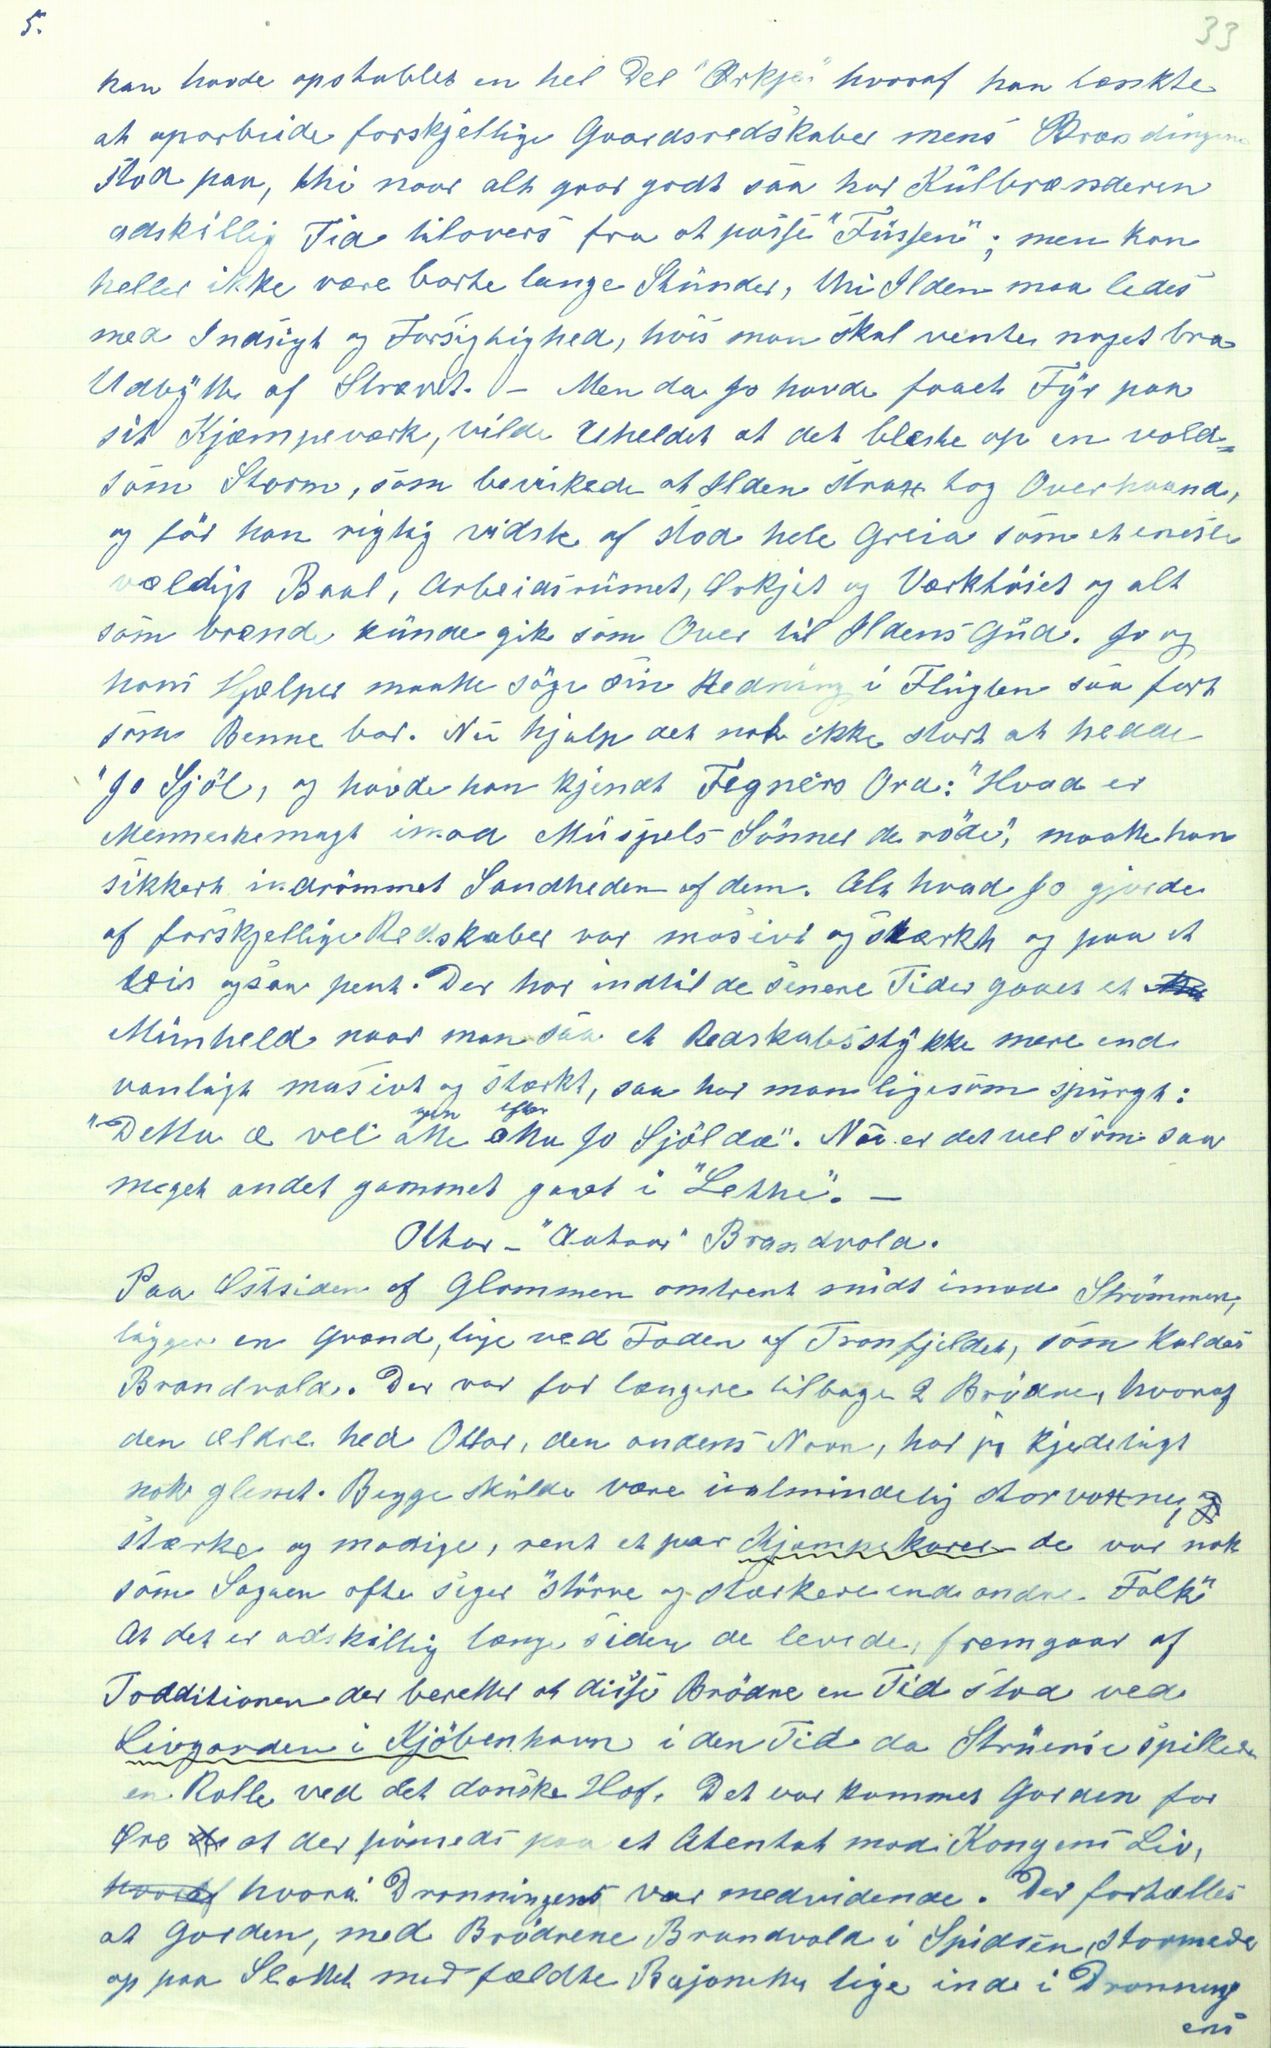 5.
33
han havde opstablet en hel Del "Ørkje" hvoraf han tænkte
at oparbeide forskjellige Gaardsredskaber mens Brændingen
stod paa, thi naar alt gaar godt saa har Kulbrænderen
adskillig Tid tilovers fra at passe "Fussen"; men kan
heller ikke være borte lange Stunder, thi Ilden maa ledes
med Indsigt og Forsigtighed, hvis man skal vente noget bra
Udbytte af Strævet. – Men da Jo havde faaet Fyr paa
sit Kjæmpeværk, vilde Uheldet at det blæste op en vold=
som Storm, som bevirkede at Ilden strax tog Overhaand,
og før han rigtig vidste af stod hele Greia som et eneste
vældigt Baal, Arbeidsrumet, Ørkjet og Værktøiet og alt
som brænde kunde gik som Over til Ildens Gud. Jo og
hans Hjælper maatte søge sin Redning i Flugten saa fort
som Benne bar. Nu hjalp det nok ikke stort at hedde
"Jo Sjöl, og havde han kjendt Tegnérs Ord: "Hvad er
Menneskemagt imod Muspels Sønner de røde", maatte han
sikkert indrømmet Sandheden af dem. Alt hvad Jo gjorde
af forskjellige Redskaber var masivt og stærkt og paa et
vis ogsaa pent. Der har indtil de senere Tider gaaet et
Mundheld naar man saa et Redskabsstykke mere end
vanligt masivt og stærkt, saa har man ligesom spurgt:
gjen efter
"Detta æ vel atte etta Jo Sjöl da". Nu er det vel som saa
meget andet gammet gaaet i "Lethe". –
Ottar – "Aataar" Brandvold.
Paa Østsiden af Glommen omtrent midt imod Strømmen,
ligger en Grænd, lige ved Foden af Tronfjeldet, som kaldes
Brandvold. Der var for længere tilbage 2 Brødre, hvoraf
den ældre hed Ottar, den andens Navn, har jeg kjedeligt
nok glemt. Begge skulde være ualmindelig storvoxne, og
stærke og modige, rent et par Kjæmpekarer de var nok
som Sagaen ofte siger "større og stærkere end andre Folk"
At det er adskillig længe siden de levede, fremgaar af
Tradditionen der beretter at disse Brødre en Tid stod ved
Livgarden i Kjøbenhavn i den Tid da Struense spillede
en Rolle ved det danske Hof. Det var kommet Garden for
Øre at der pønseds paa et Atentat mod Kongens Liv,
hvoraf hvori Dronningens var medvidende. Der fortælles
at Garden, med Brødrene Brandvold i Spidsen, stormede
op paa Slottet med fældte Bajonetter lige ind i Dronning
ens